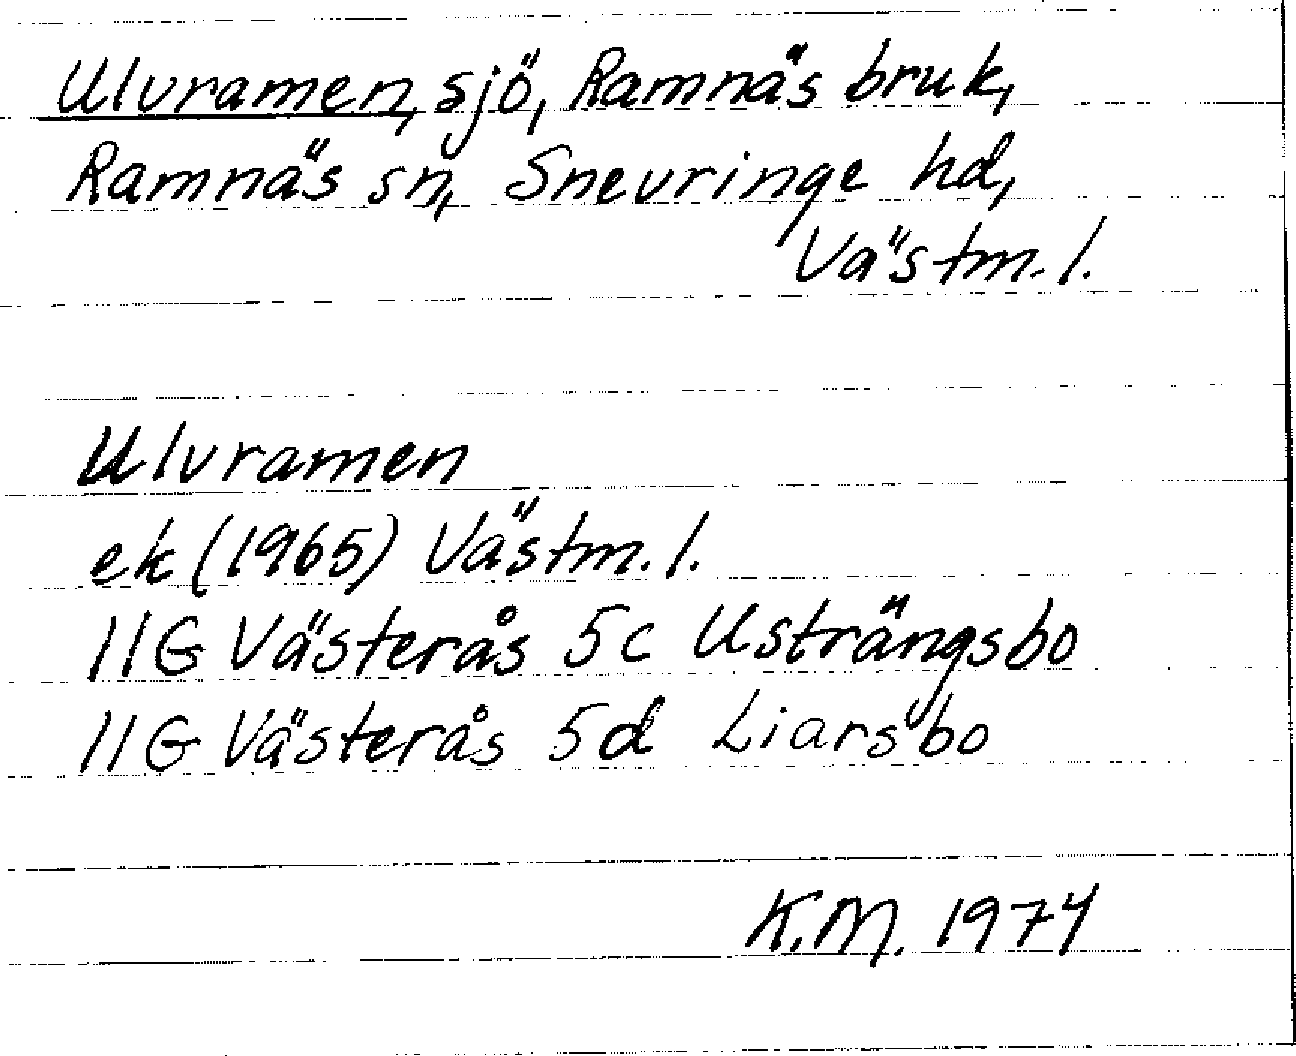 Ulvramen, sjö, Ramnäs bruk,
Ramnäs sn, Snevringe hd,
Västm. l.
Ulvramen
ek (1965) Västm. l.
11G Västerås 5c Usträngsbo
11G Västerås 5d Liarsbo
K.M. 1974